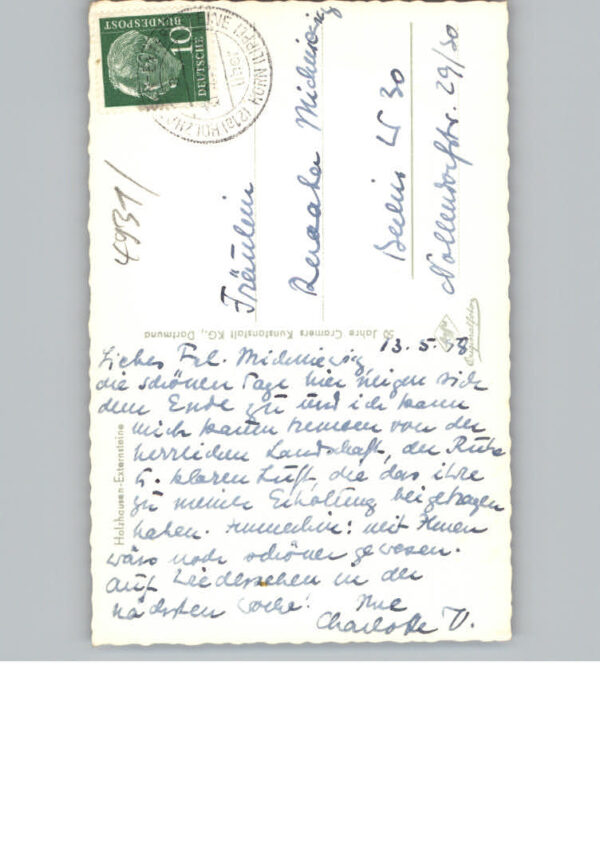 DEUTSCHE
BUNDESPOST
10
4931/
Fräulein
Michniewig
Berlin W 30
Nollendorfstr. 29/30
50 Jahre Cramers Kunstanstalt KG., Dortmund
Originalfoto
Holzhausen-Externsteine
13. 5. 58
Liebes Frl. Michniewig,
die schönen Tage hier neigen sich
dem Ende zu und ich kann
mich kaum trennen von der
herrlichen Landschaft, der Ruhe
u. klaren Luft die das ihre
zu meiner Erholung beigetragen
haben. Immerhin: mit Ihnen
wärs noch schöner gewesen.
Auf Wiedersehen in der
nächsten Woche! Ihre
Charlotte V.